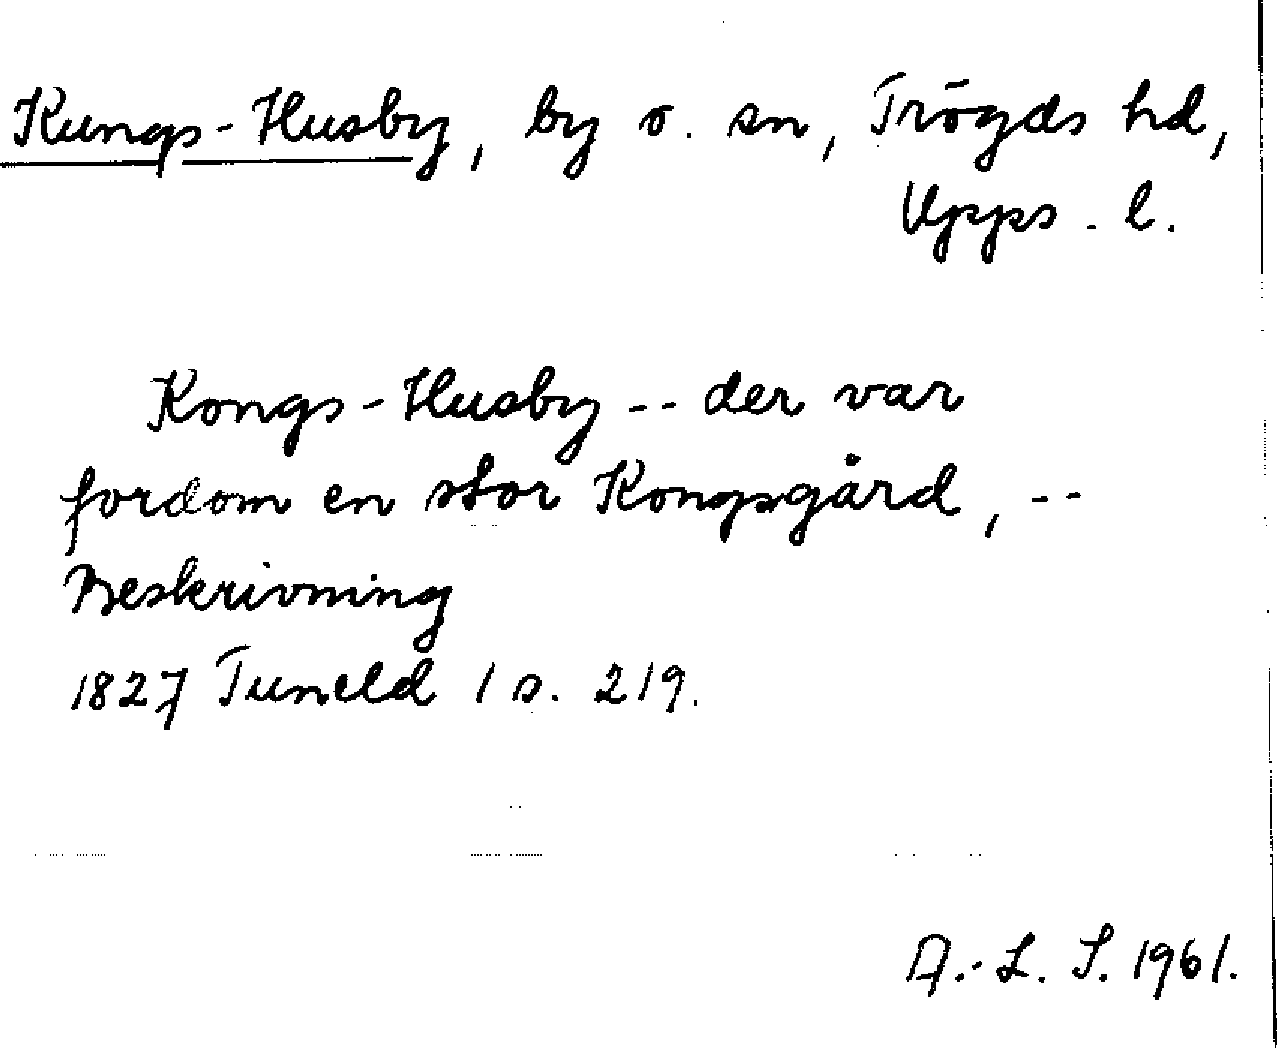 Kungs-Husby, by o. sn, Trögds hd,
Upps. l.
Kongs-Husby -- der var
fordom en stor Kongsgård, --
Beskrivning
1827 Tuneld 1 s. 219.
A.-L. S. 1961.